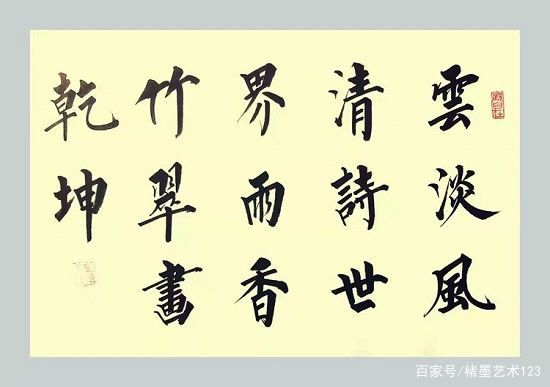 雲淡風
清詩世
界雨香
竹翠畫
乾坤
百家号/楮墨艺术123